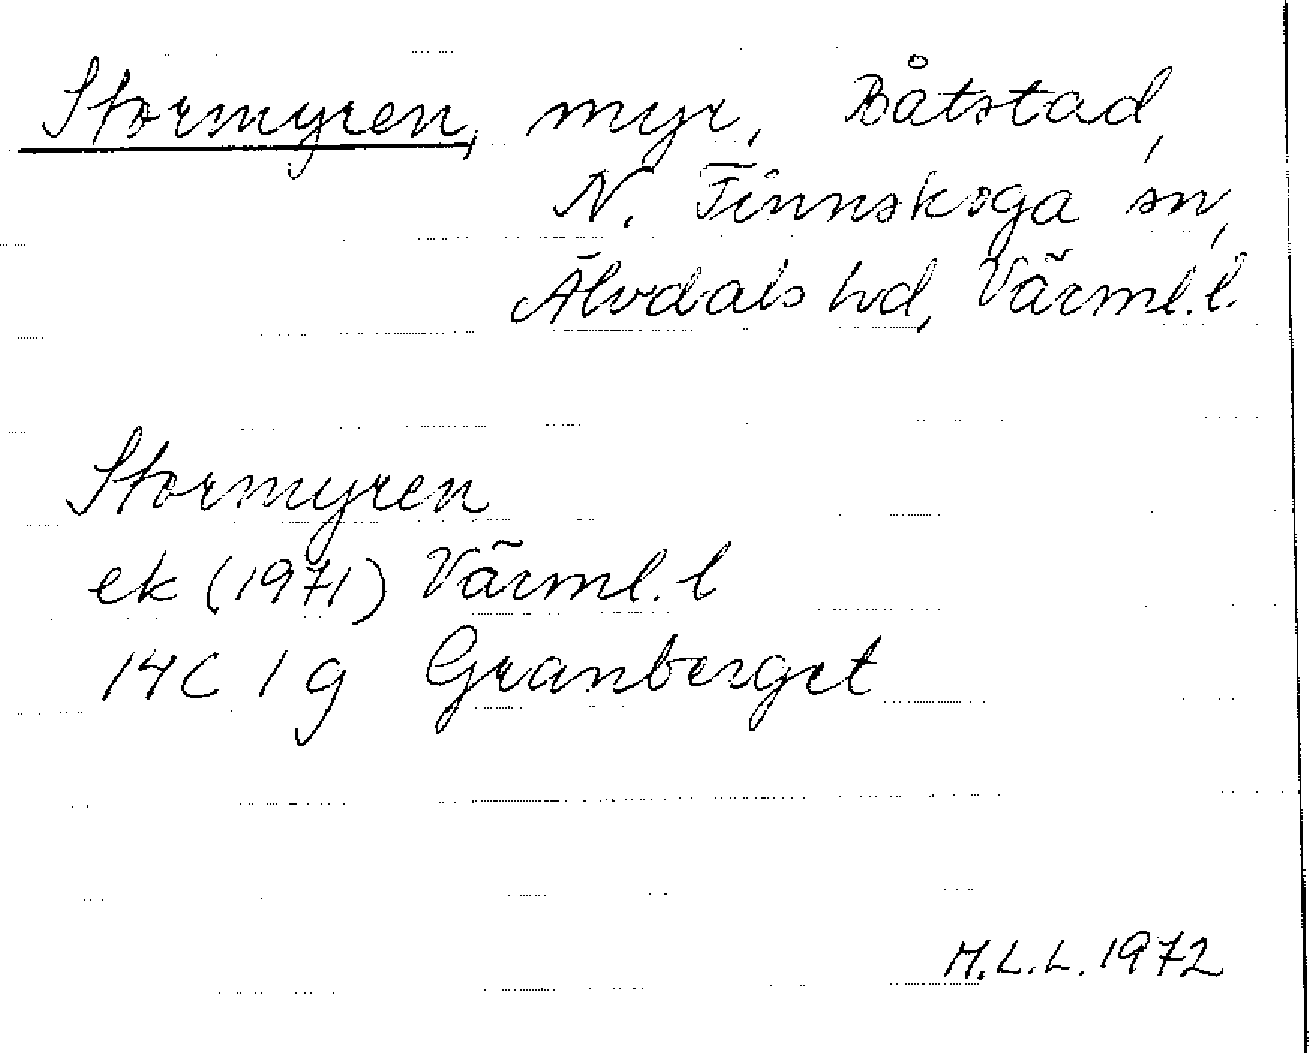 Stormyren, myr, Båtstad,
N. Finnskoga sn,
Älvdals hd, Värml.l.
Stormyren
ek (1971) Värml. l
14C 1 g Granberget
M.L.L. 1972